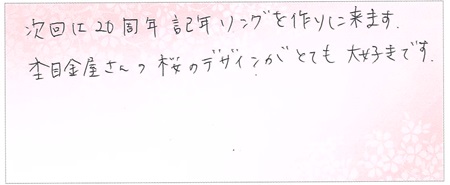 次回は20周年記年リングを作りに来ます.
杢目金屋さんの桜のデザインがとても大好きです.